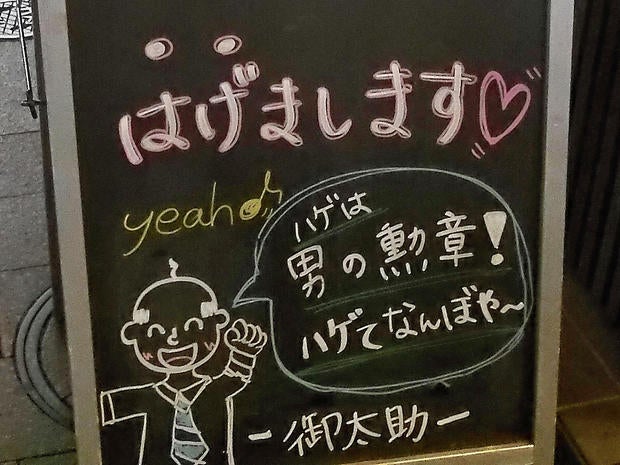 はげまします♡
yeah♪
ハゲは
男の勲章!
ハゲてなんぼや〜
ー御太助ー